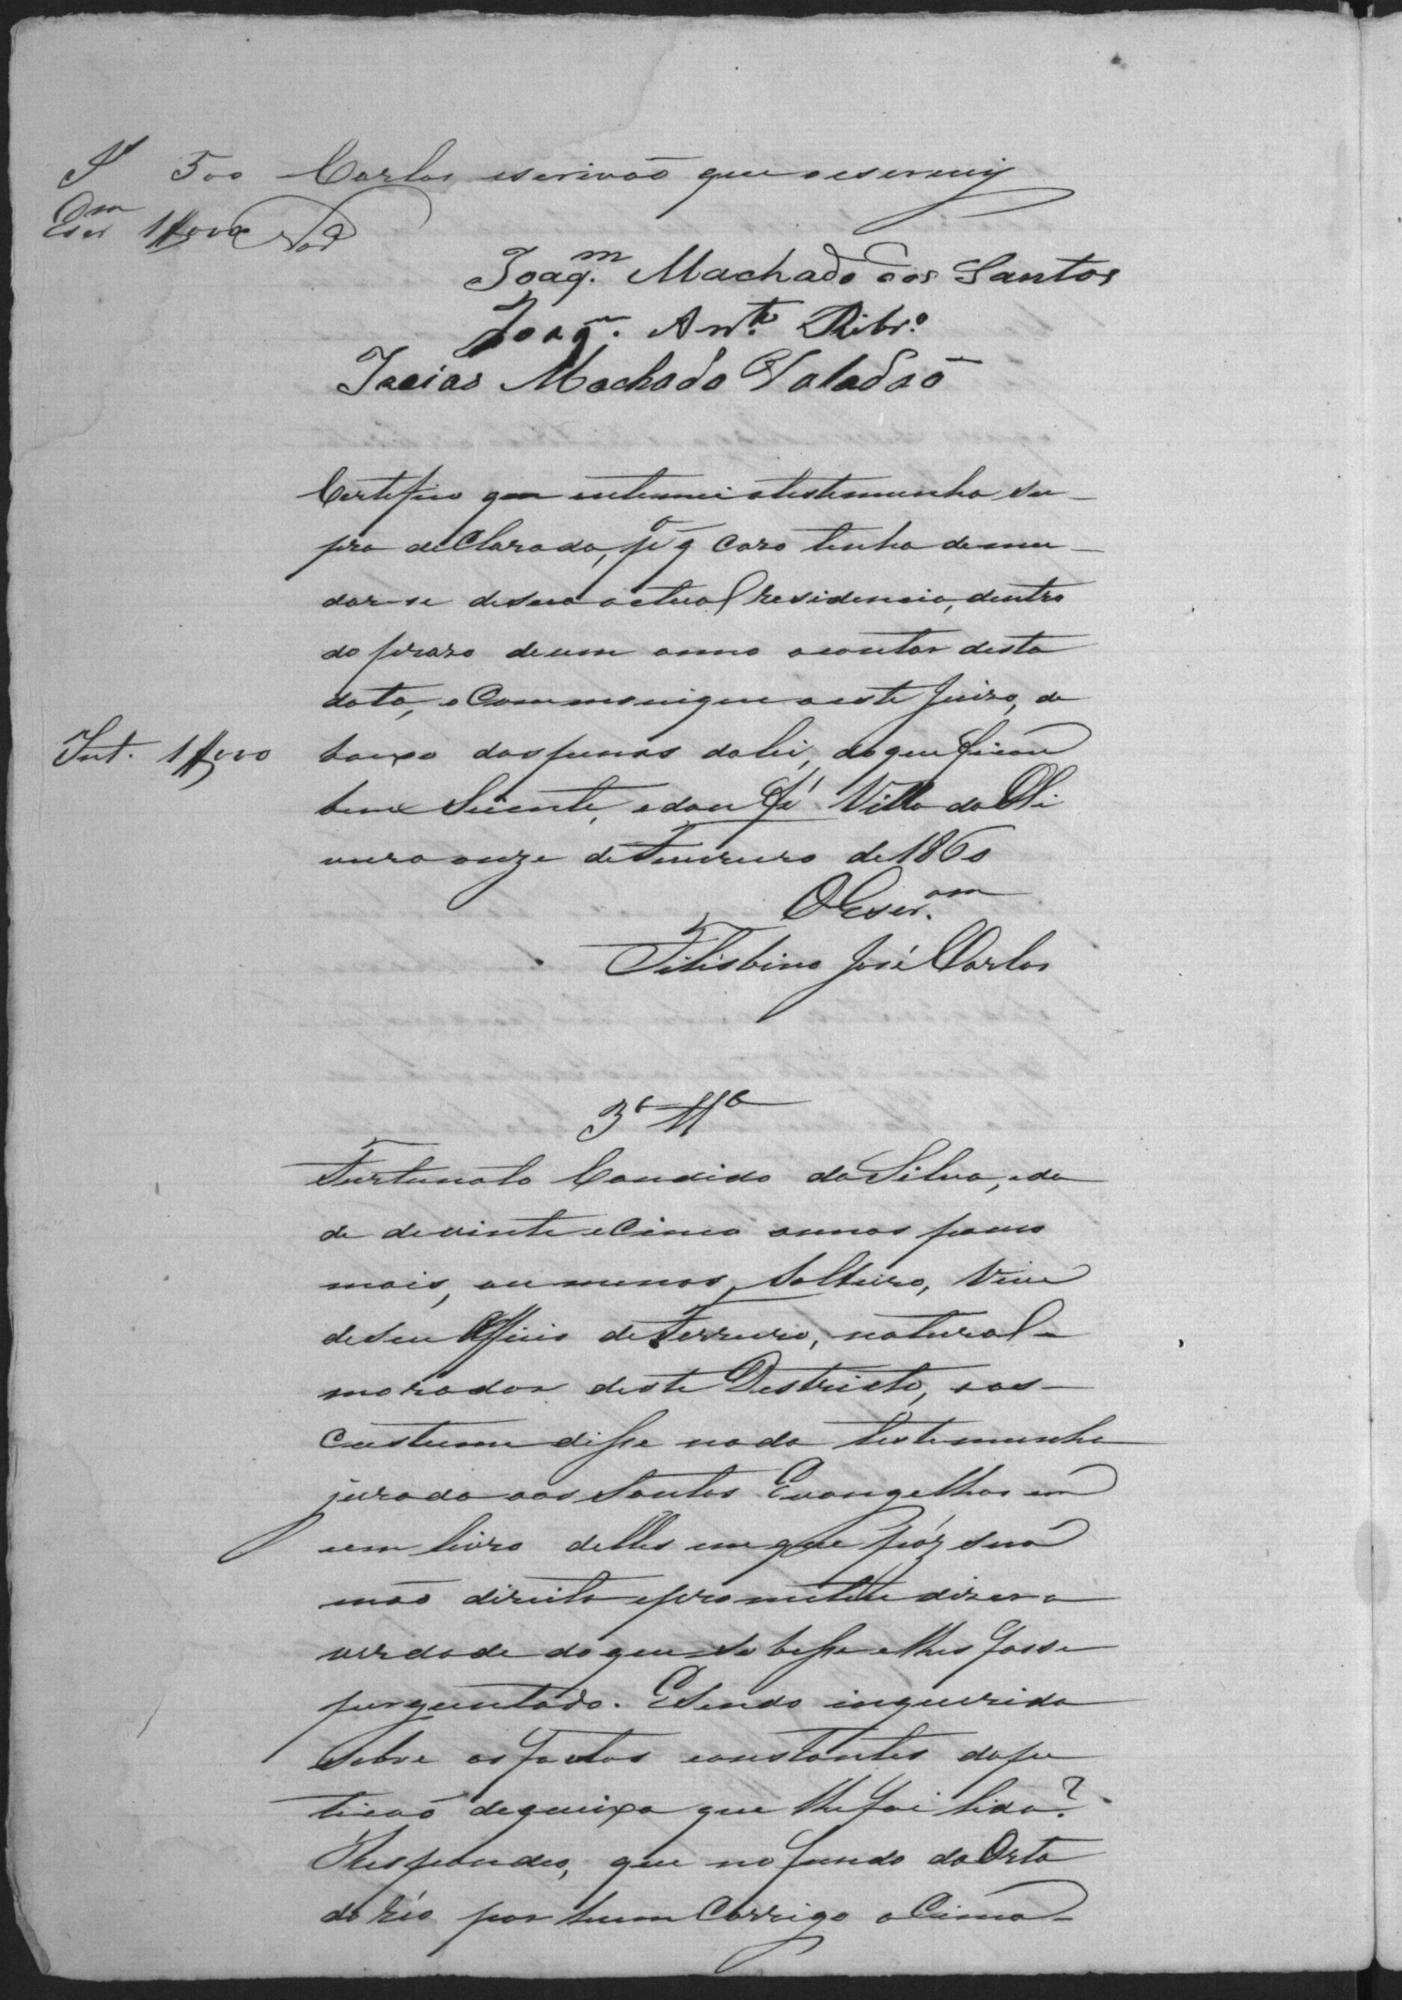 Jº 500 Carlos escrivaõ que o escrevy
Escr.am 1$000
Joaq.m Machado dos Santos
Joaq.m Ant.o Ribr.o
Isaias Machado Valadaõ
Certifico que entemei a testemunha su-
pra declarada, p.a q caso tenha de mu-
dar-se de sua actual residencia, dentro
do prazo de um anno a contar desta
data, o communique a este Juizo, de
Int. 1$000 baixo das penas da lei, do que ficou
bem Siente, e dou fé. Villa da Oli
veira onze de Fevereiro de 1860
O Escr.am
Felisbino José Carlos
3ª Tª
Fortunato Candido da Silva, ida
de de vinte e Cinco annos pouco
mais, ou menos, Solteiro, Vive
de seu Officio de Ferreiro, natural
morador deste Destricto, e aos
Custume disse nada testemunha
jurada aos Santos Evangelhos em
um livro delles em que pôz sua
mão direita e prometteu dizer a
verdade do que soubesse e lhes fosse
perguntado. E sendo inquerida
sobre os factos constantes da pe
ticaõ de queixa que lhe foi lida?
Respondeo, que no fundo da Orta
do réo por hum Corrigo a Cima